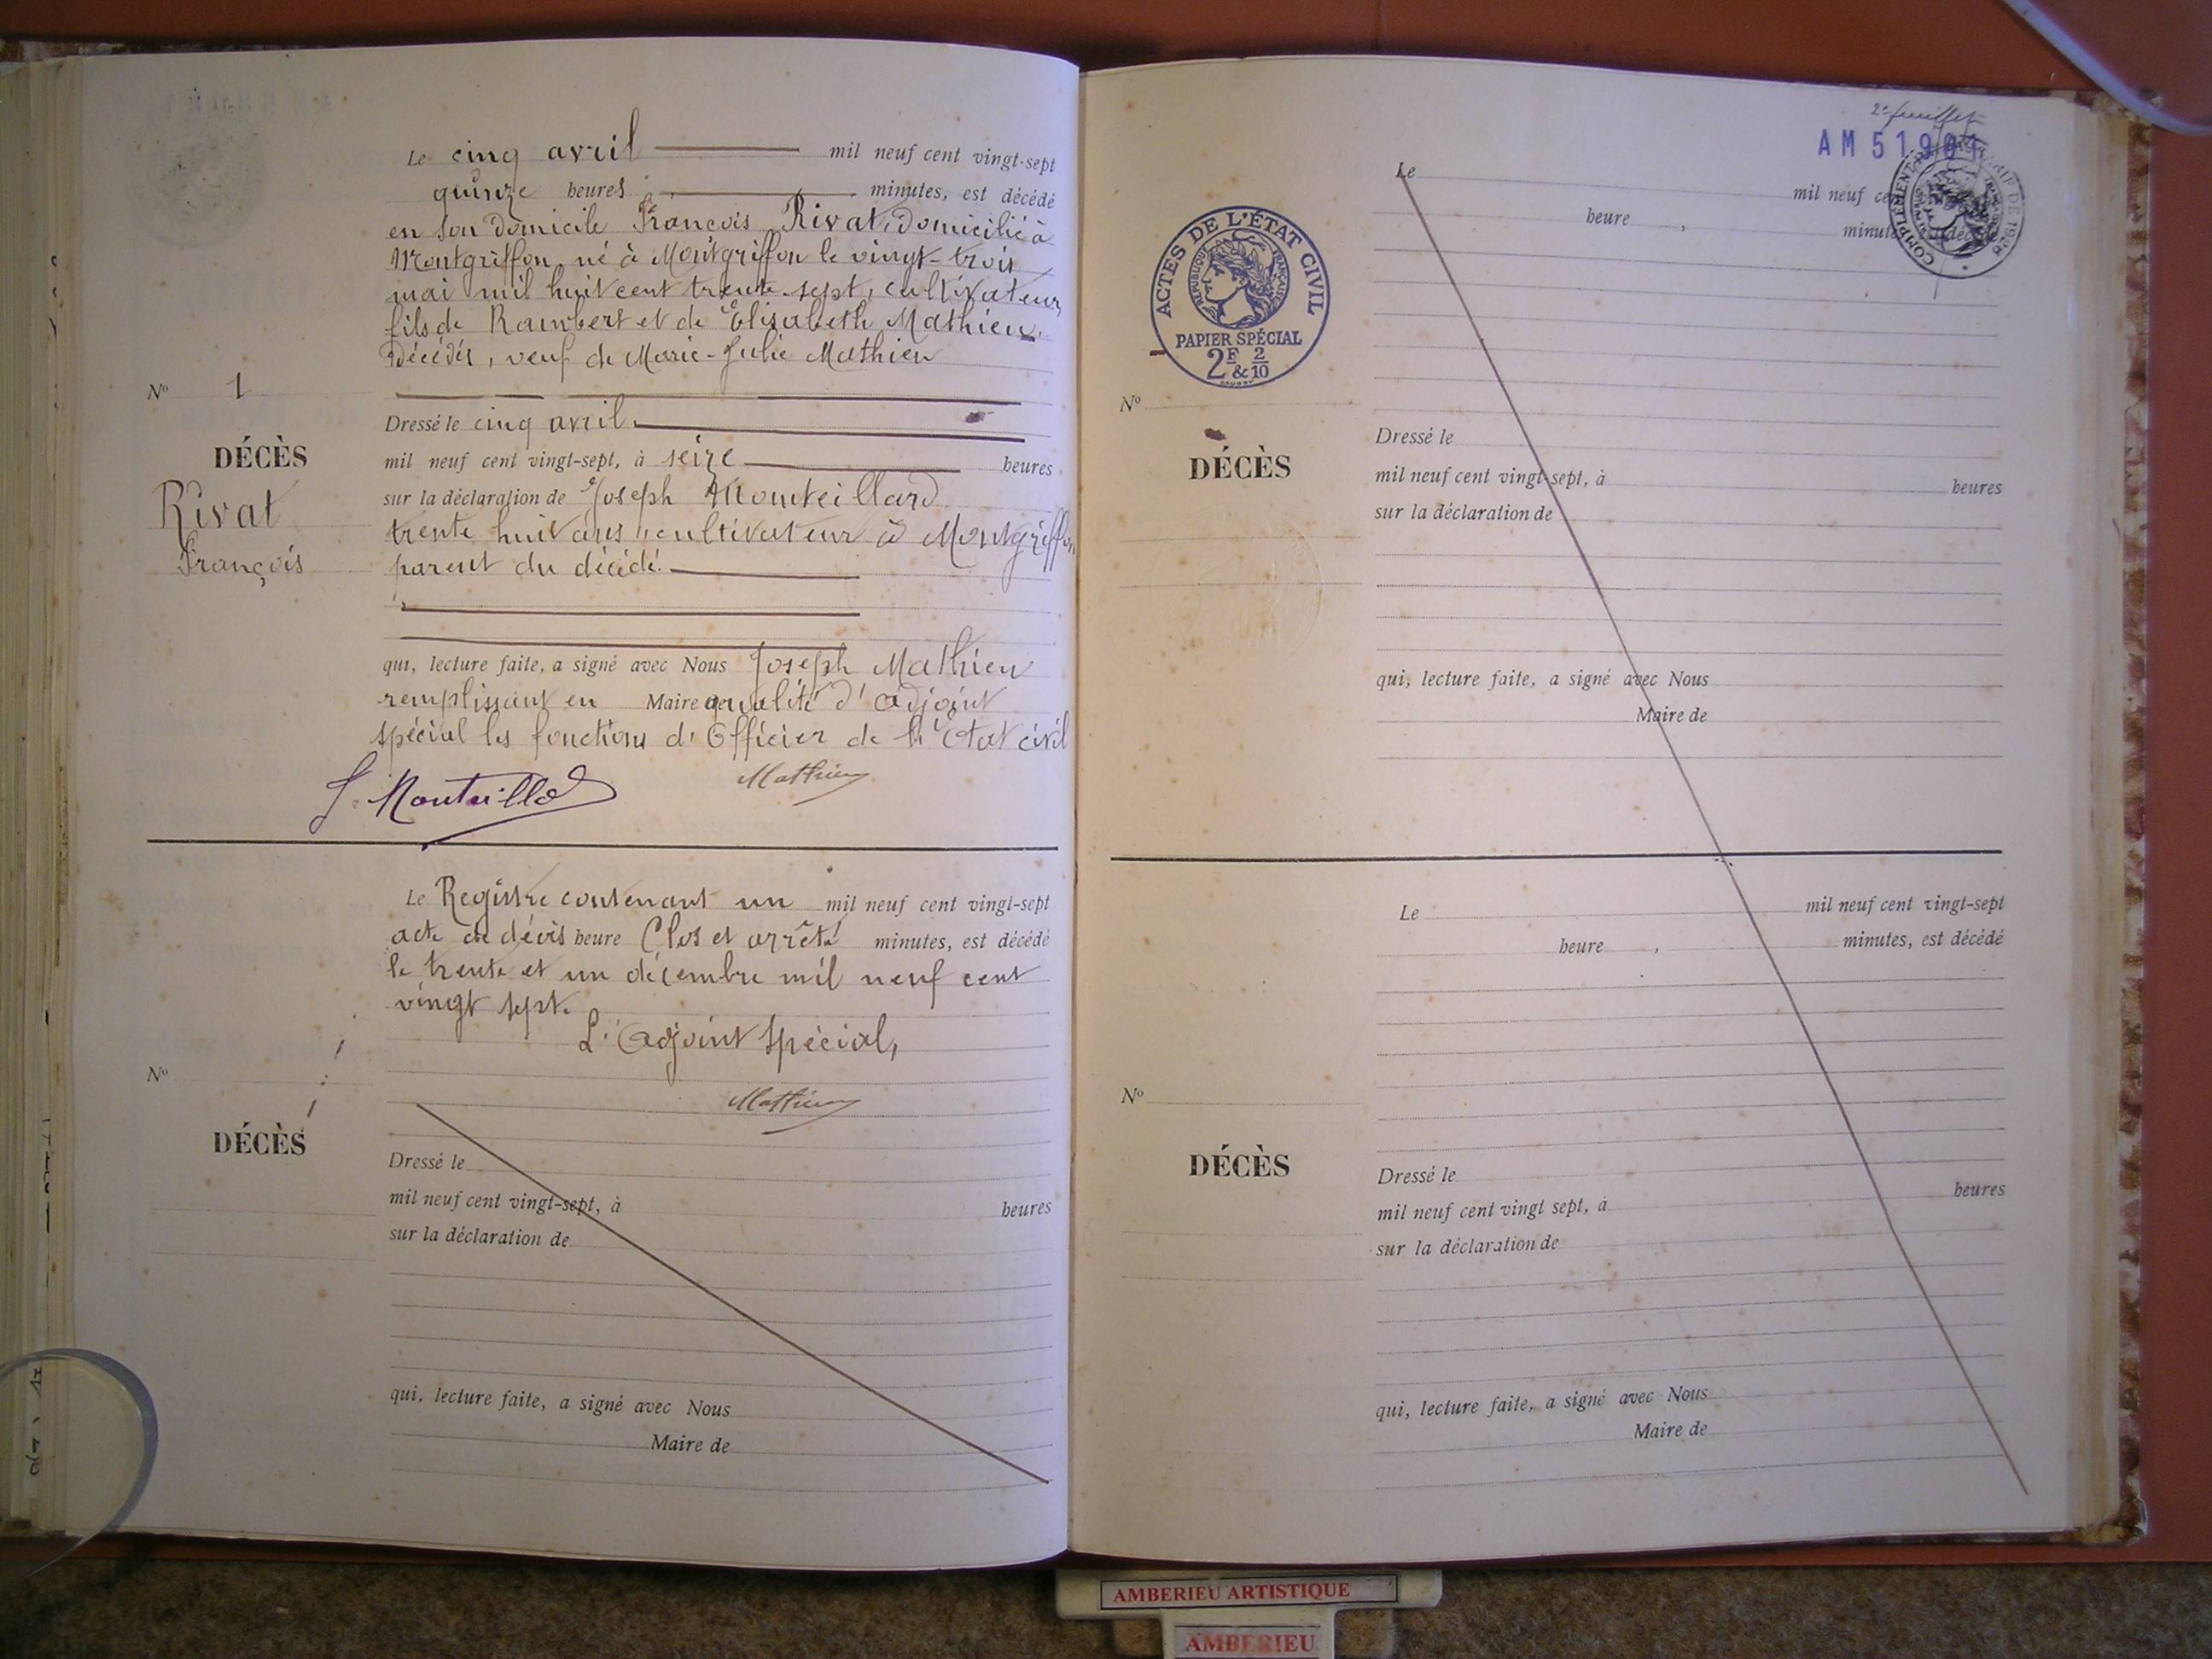 Le cinq avril mil neuf cent vingt-sept
quinze heures , minutes, est décédé
en son domicile François Rivat, domicilié à
Montgriffon, né à Montgriffon le vingt-trois
mai mil huit cent trente sept, cultivateur,
fils de Rambert et de Elisabeth Mathieu,
décédés, veuf de Marie-Julie Mathieu
No 1
DÉCÈS
Rivat
François
Dressé le cinq avril
mil neuf cent vingt-sept, à seize heures
sur la déclaration de Joseph Monteillard
trente huit ans, cultivateur à Montgriffon
parent du décédé.
qui, lecture faite, a signé avec Nous Joseph Mathieu
remplissant en Maire de qualité d'adjoint
spécial les fonctions d'Officier de l'Etat civil
J. Monteillard
Mathieu
Le Registre contenant un mil neuf cent vingt-sept
acte de décès heure Clos et arrêté minutes, est décédé
le trente et un décembre mil neuf cent
vingt sept.
L'adjoint spécial,
Mathieu
No
DÉCÈS
Dressé le
mil neuf cent vingt-sept, à heures
sur la déclaration de
qui, lecture faite, a signé avec Nous
Maire de
2e feuillet
AM 51901
ACTES DE L'ÉTAT CIVIL
RÉPUBLIQUE FRANÇAISE
PAPIER SPÉCIAL
2F & 2/10
Le mil neuf ce
heure , minut
No
DÉCÈS
Dressé le
mil neuf cent vingt-sept, à heures
sur la déclaration de
qui, lecture faite, a signé avec Nous
Maire de
Le mil neuf cent vingt-sept
heure , minutes, est décédé
No
DÉCÈS
Dressé le
mil neuf cent vingt sept, à heures
sur la déclaration de
qui, lecture faite, a signé avec Nous
Maire de
AMBERIEU ARTISTIQUE
AMBERIEU